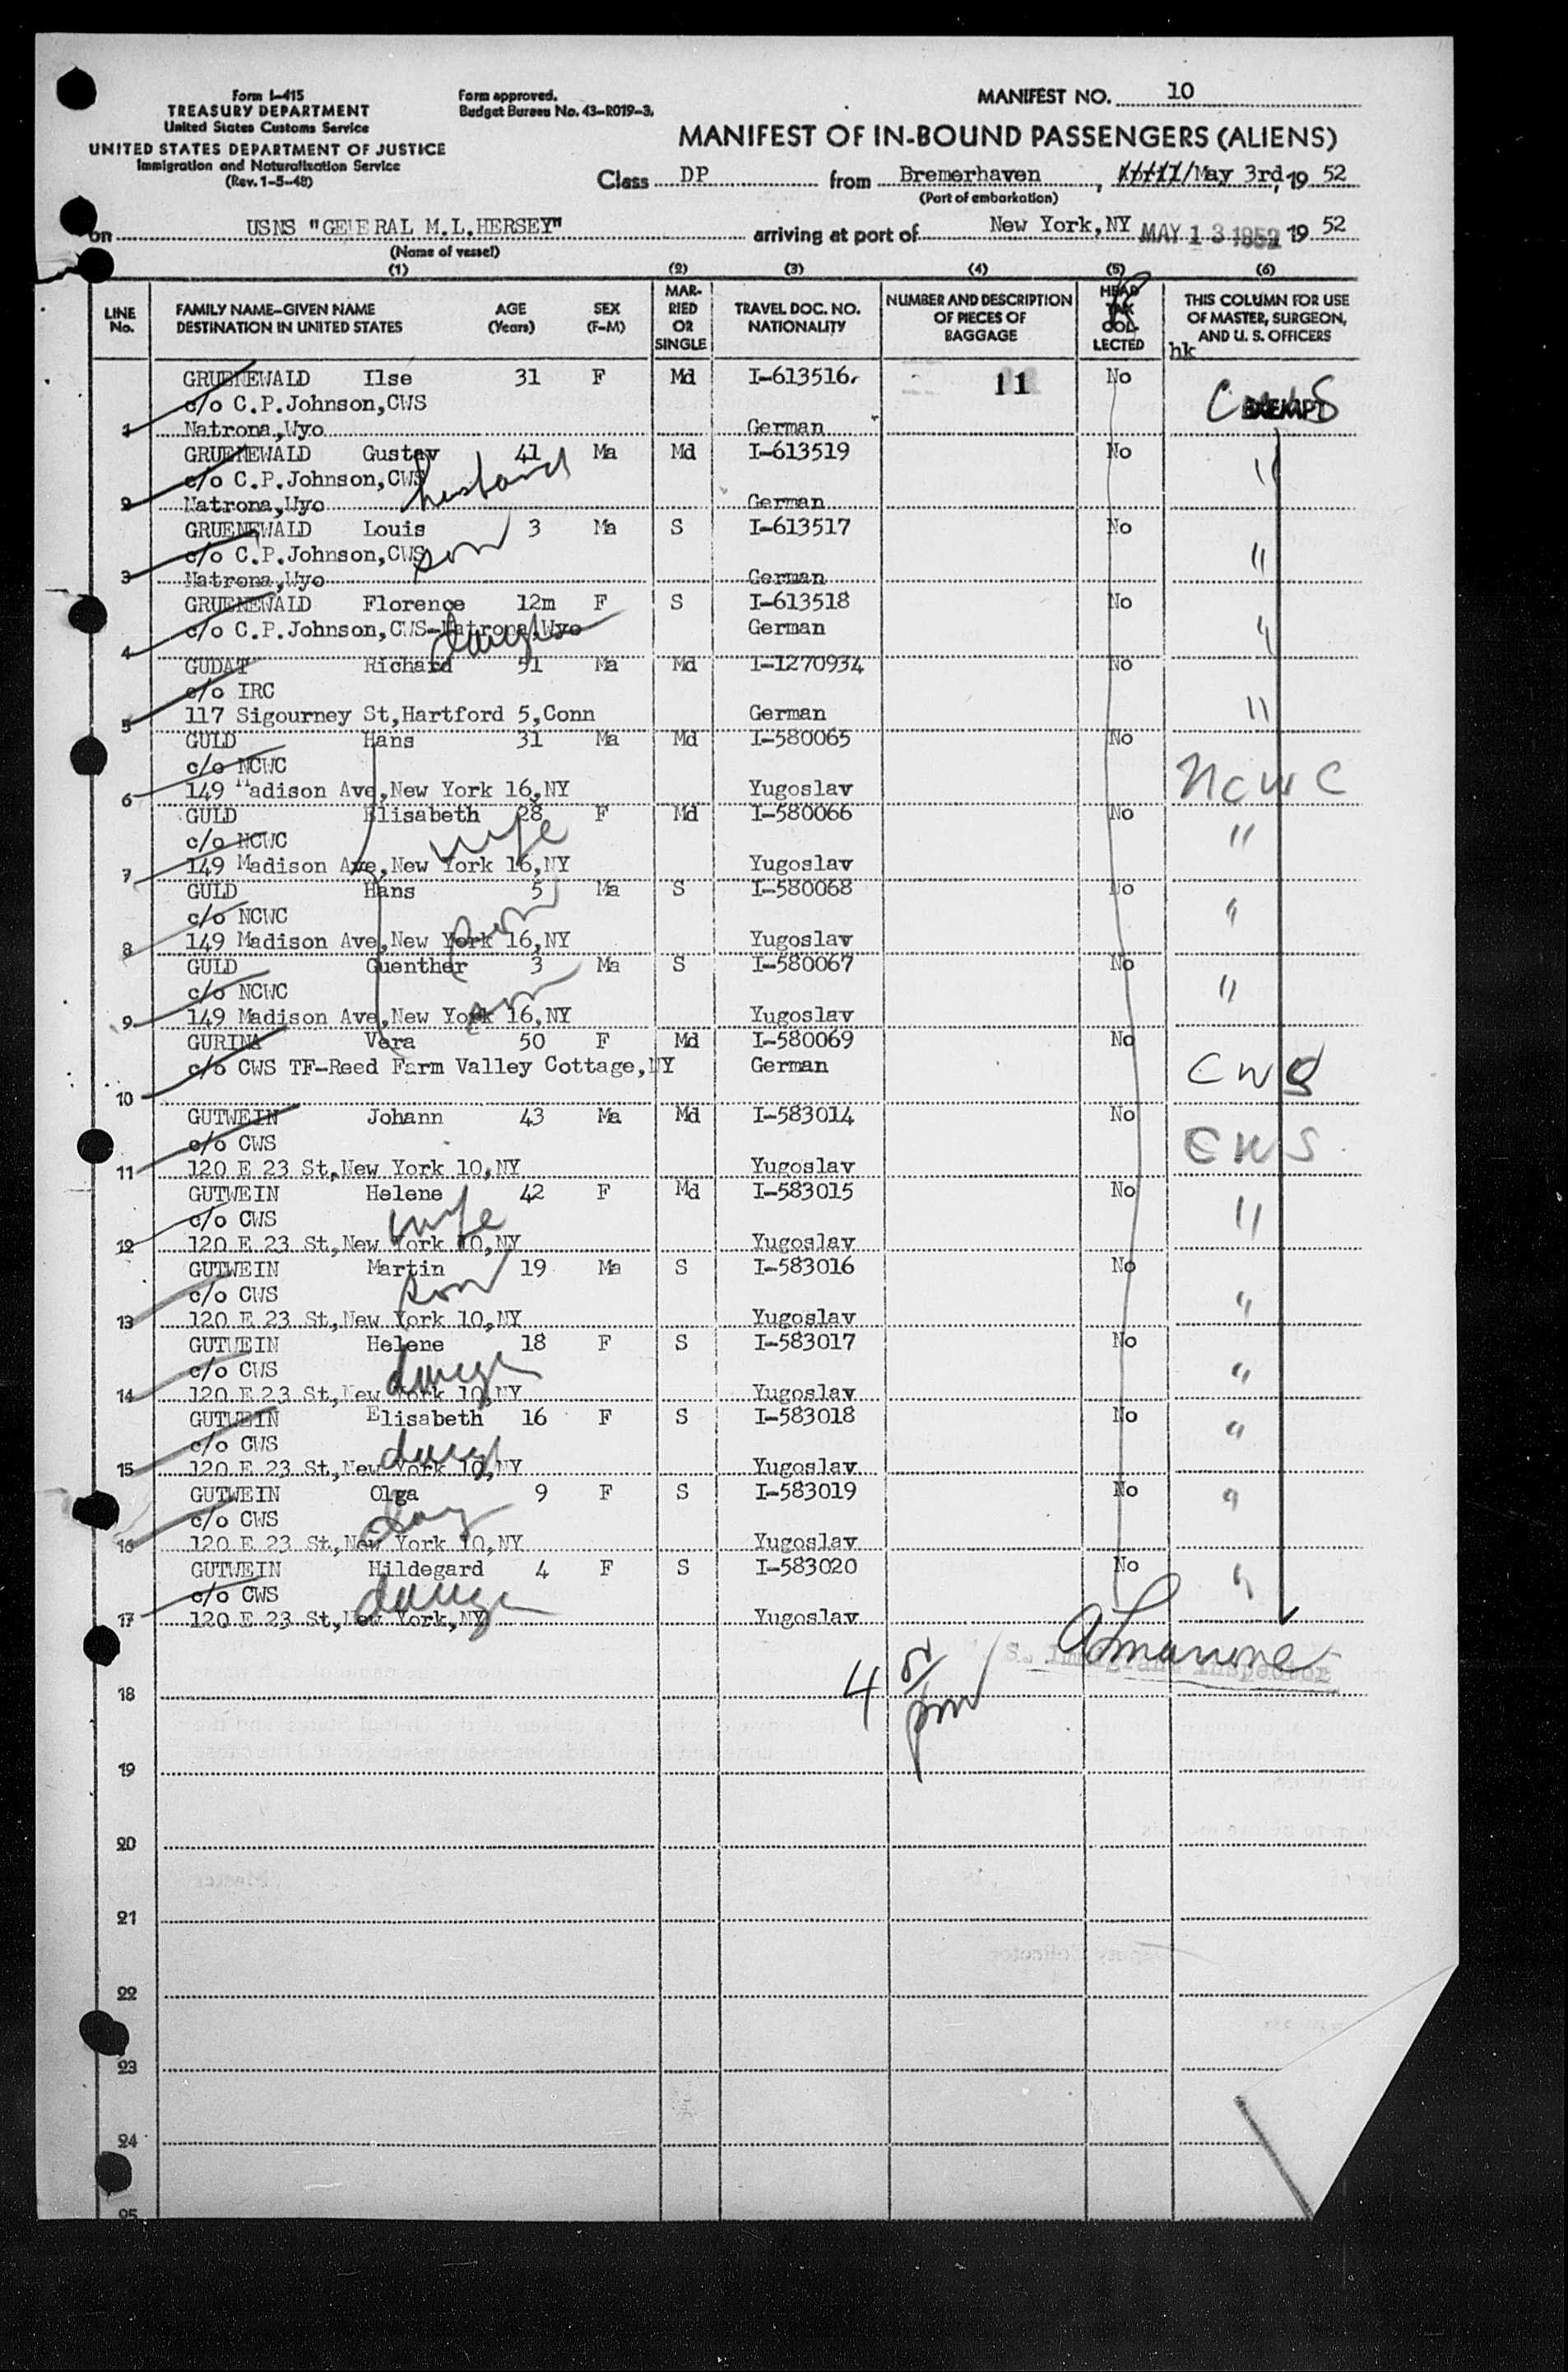 Form I-415
TREASURY DEPARTMENT
United States Customs Service
UNITED STATES DEPARTMENT OF JUSTICE
Immigration and Naturalization Service
(Rev. 1-5-48)
Form approved.
Budget Bureau No. 43-R019-3.
MANIFEST NO. 10
MANIFEST OF IN-BOUND PASSENGERS (ALIENS)
Class DP from Bremerhaven, May 3rd, 19 52
(Port of embarkation)
on USNS "GENERAL M.L.HERSEY" arriving at port of New York,NY MAY 13 1952 19 52
(Name of vessel)
(1) (2) (3) (4) (5) (6)
LINE No.
FAMILY NAME–GIVEN NAME
DESTINATION IN UNITED STATES
AGE (Years)
SEX (F–M)
MARRIED OR SINGLE
TRAVEL DOC. NO.
NATIONALITY
NUMBER AND DESCRIPTION OF PIECES OF BAGGAGE
HEAD TAX COLLECTED
THIS COLUMN FOR USE OF MASTER, SURGEON, AND U. S. OFFICERS
hk
GRUENEWALD Ilse 31 F Md I-613516 11 No
c/o C.P.Johnson,CWS CWS EXEMPT
1 Natrona,Wyo German
GRUENEWALD Gustav 41 Ma Md I-613519 No
c/o C.P.Johnson,CWS husband "
2 Natrona,Wyo German
GRUENEWALD Louis 3 Ma S I-613517 No
c/o C.P.Johnson,CWS son "
3 Natrona,Wyo German
GRUENEWALD Florence 12m F S I-613518 No
c/o C.P.Johnson,CWS-Natrona,Wyo German "
4 daugh
GUDAT Richard 51 Ma Md I-1270934 No
c/o IRC
5 117 Sigourney St,Hartford 5,Conn German "
GULD Hans 31 Ma Md I-580065 No
c/o NCWC NCWC
6 149 Madison Ave,New York 16,NY Yugoslav
GULD Elisabeth 28 F Md I-580066 No
c/o NCWC wife "
7 149 Madison Ave,New York 16,NY Yugoslav
GULD Hans 5 Ma S I-580068 No
c/o NCWC son "
8 149 Madison Ave,New York 16,NY Yugoslav
GULD Guenther 3 Ma S I-580067 No
c/o NCWC son "
9 149 Madison Ave,New York 16,NY Yugoslav
GURINA Vera 50 F Md I-580069 No
c/o CWS TF-Reed Farm Valley Cottage,NY German CWS
10
GUTWEIN Johann 43 Ma Md I-583014 No
c/o CWS CWS
11 120 E 23 St,New York 10,NY Yugoslav
GUTWEIN Helene 42 F Md I-583015 No
c/o CWS wife "
12 120 E 23 St,New York 10,NY Yugoslav
GUTWEIN Martin 19 Ma S I-583016 No
c/o CWS son "
13 120 E 23 St,New York 10,NY Yugoslav
GUTWEIN Helene 18 F S I-583017 No
c/o CWS daugh "
14 120 E 23 St,New York 10,NY Yugoslav
GUTWEIN Elisabeth 16 F S I-583018 No
c/o CWS daugh "
15 120 E 23 St,New York 10,NY Yugoslav
GUTWEIN Olga 9 F S I-583019 No
c/o CWS "
16 120 E 23 St,New York 10,NY Yugoslav
GUTWEIN Hildegard 4 F S I-583020 No
c/o CWS daugh "
17 120 E 23 St,New York,NY Yugoslav
Immigrant Inspector
4 pm
18
19
20
21
22
23
24
25